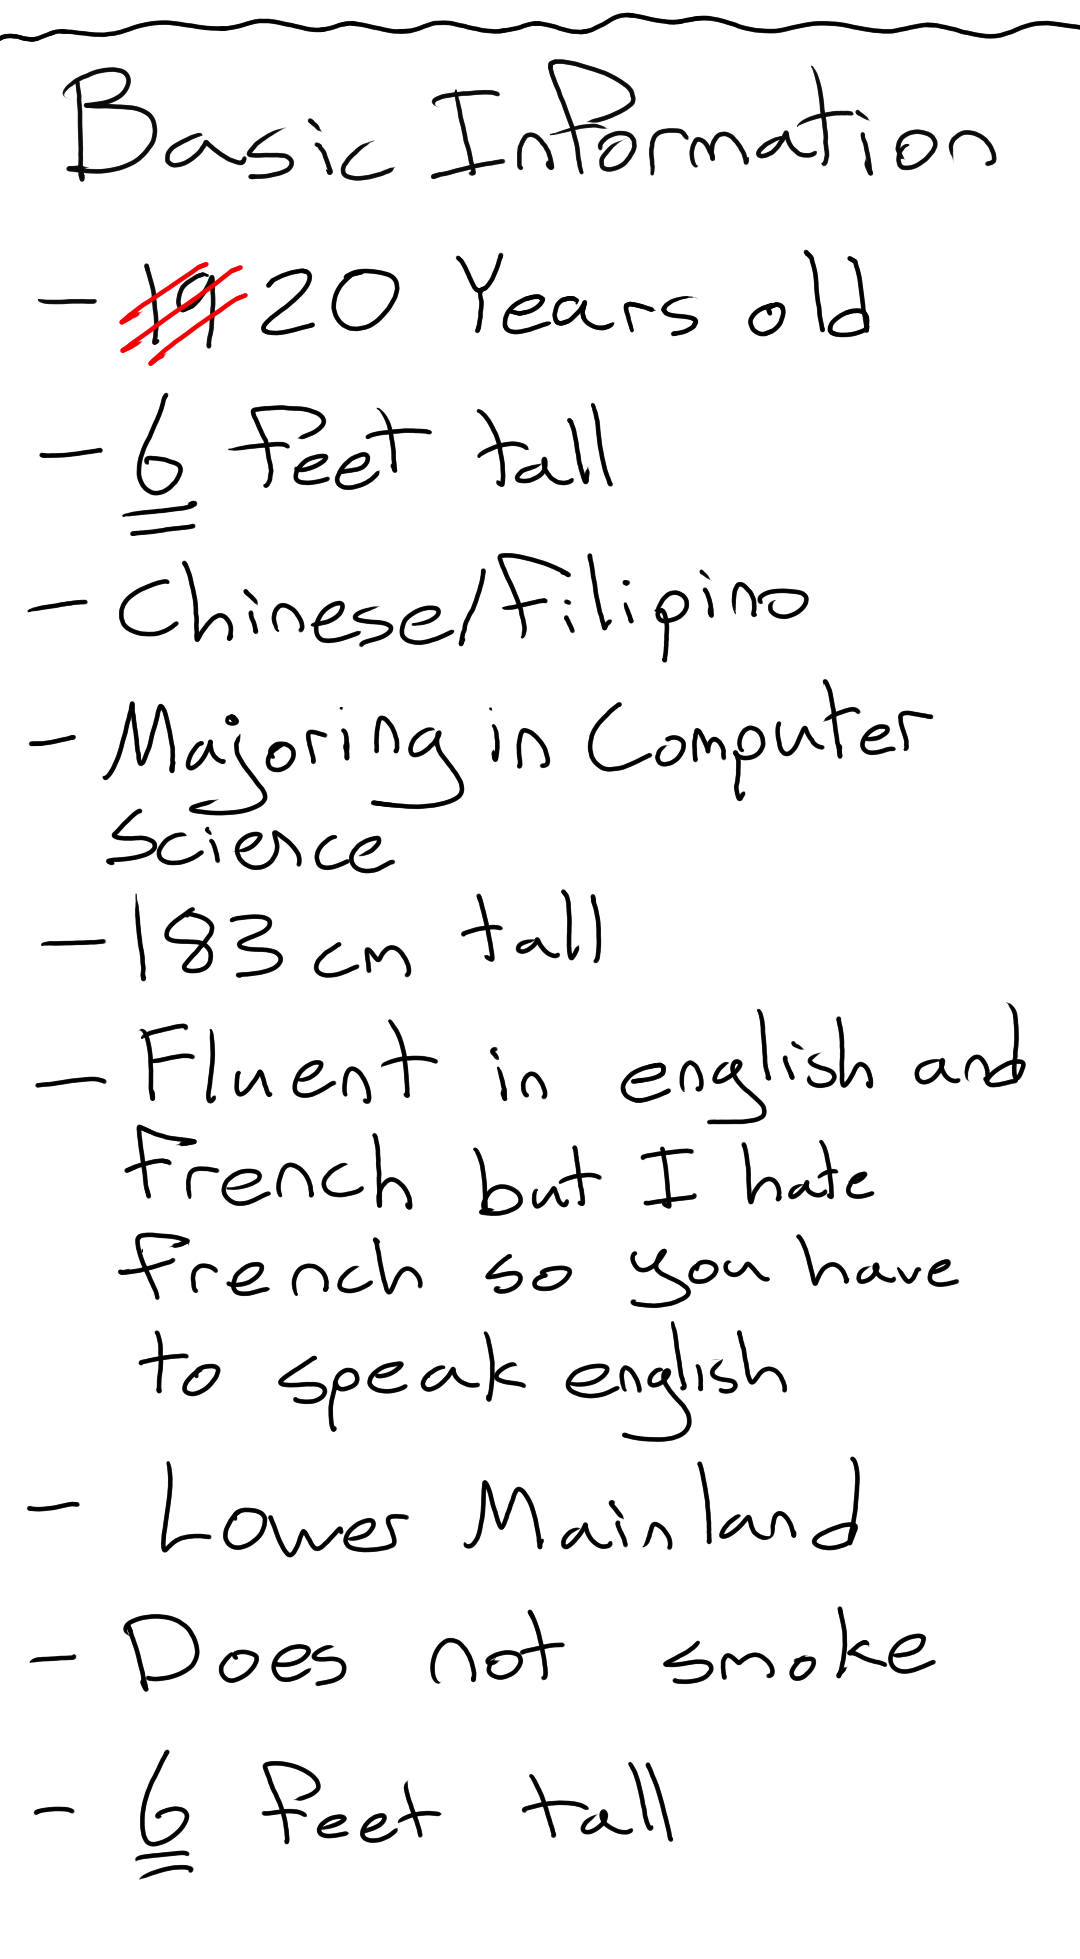 Basic Information
- 19 20 Years old
- 6 feet tall
- Chinese/Filipino
- Majoring in Computer
Science
- 183 cm tall
- Fluent in english and
french but I hate
french so you have
to speak english
- Lower Mainland
- Does not smoke
- 6 feet tall